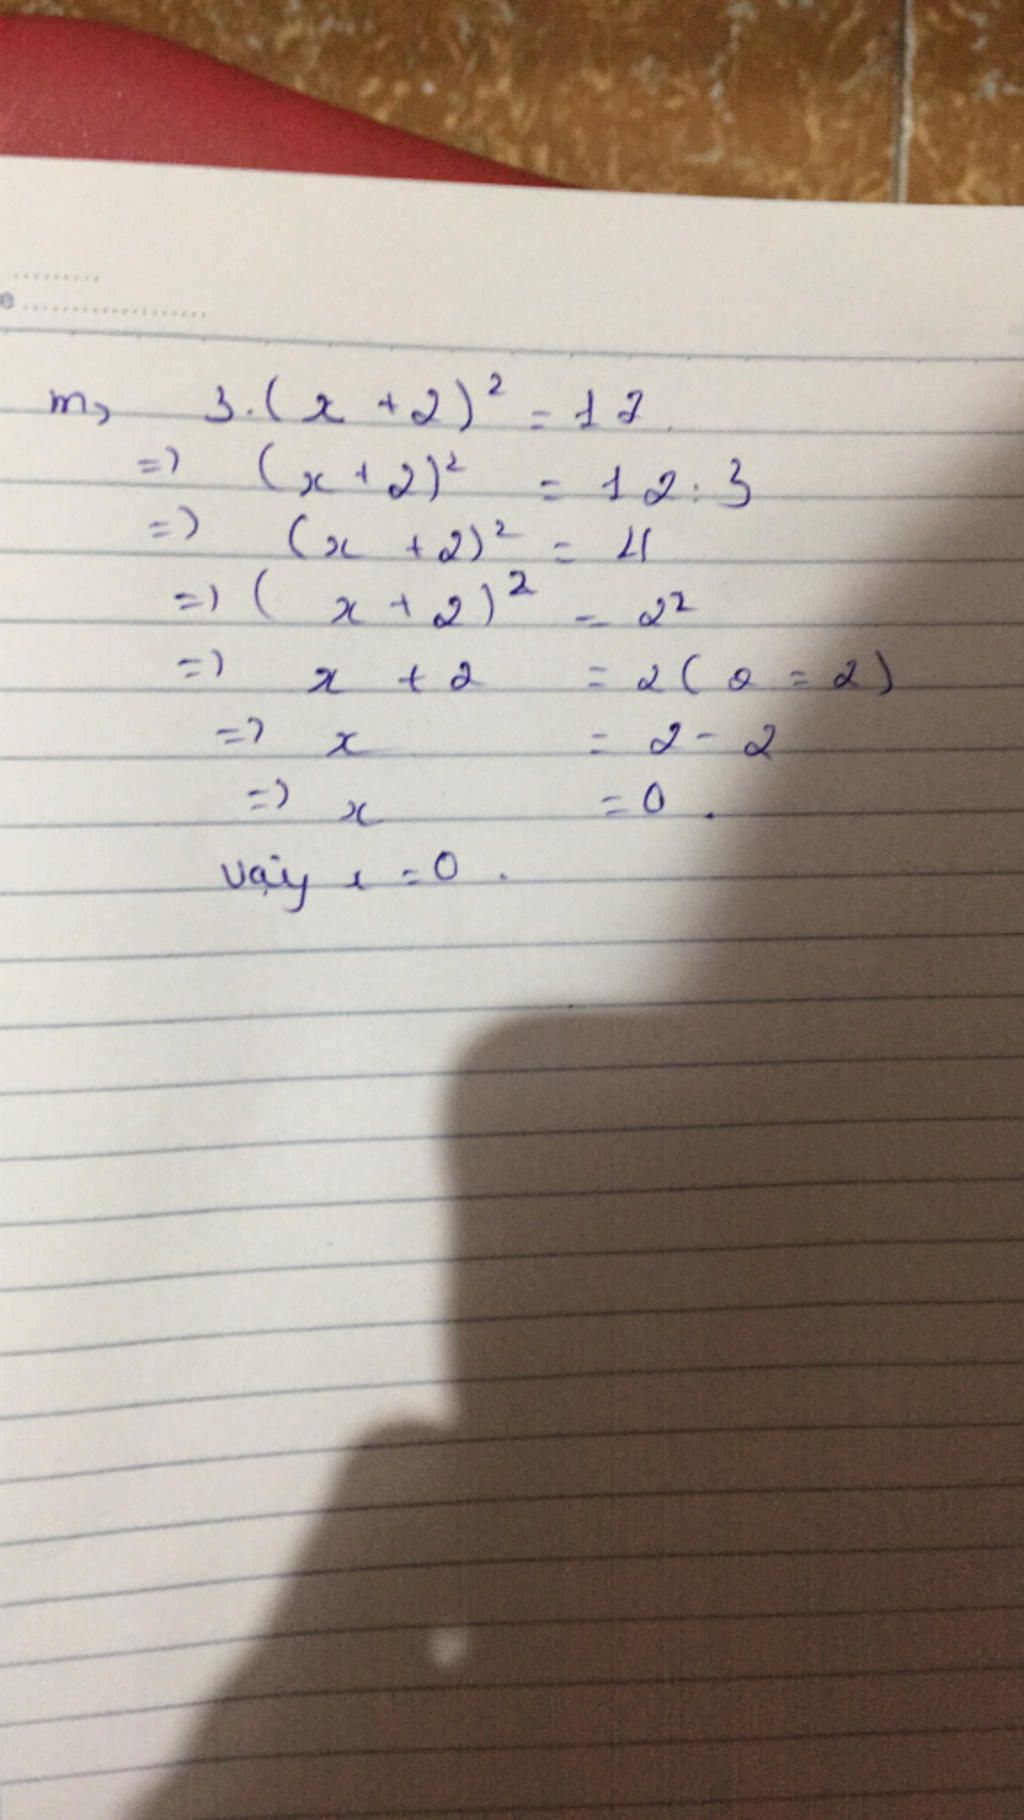 m, 3.(x + 2)² = 12
=> (x + 2)² = 12 : 3
=> (x + 2)² = 4
=> (x + 2)² = 2²
=> x + 2 = 2 (2 = 2)
=> x = 2 - 2
=> x = 0.
vậy x = 0.